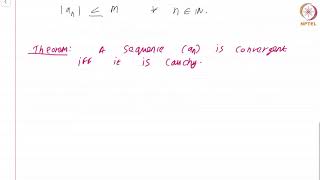 |aₙ| ≤ M ∀ n ∈ ℕ.
Theorem: A sequence (aₙ) is convergent
iff it is Cauchy.
NPTEL